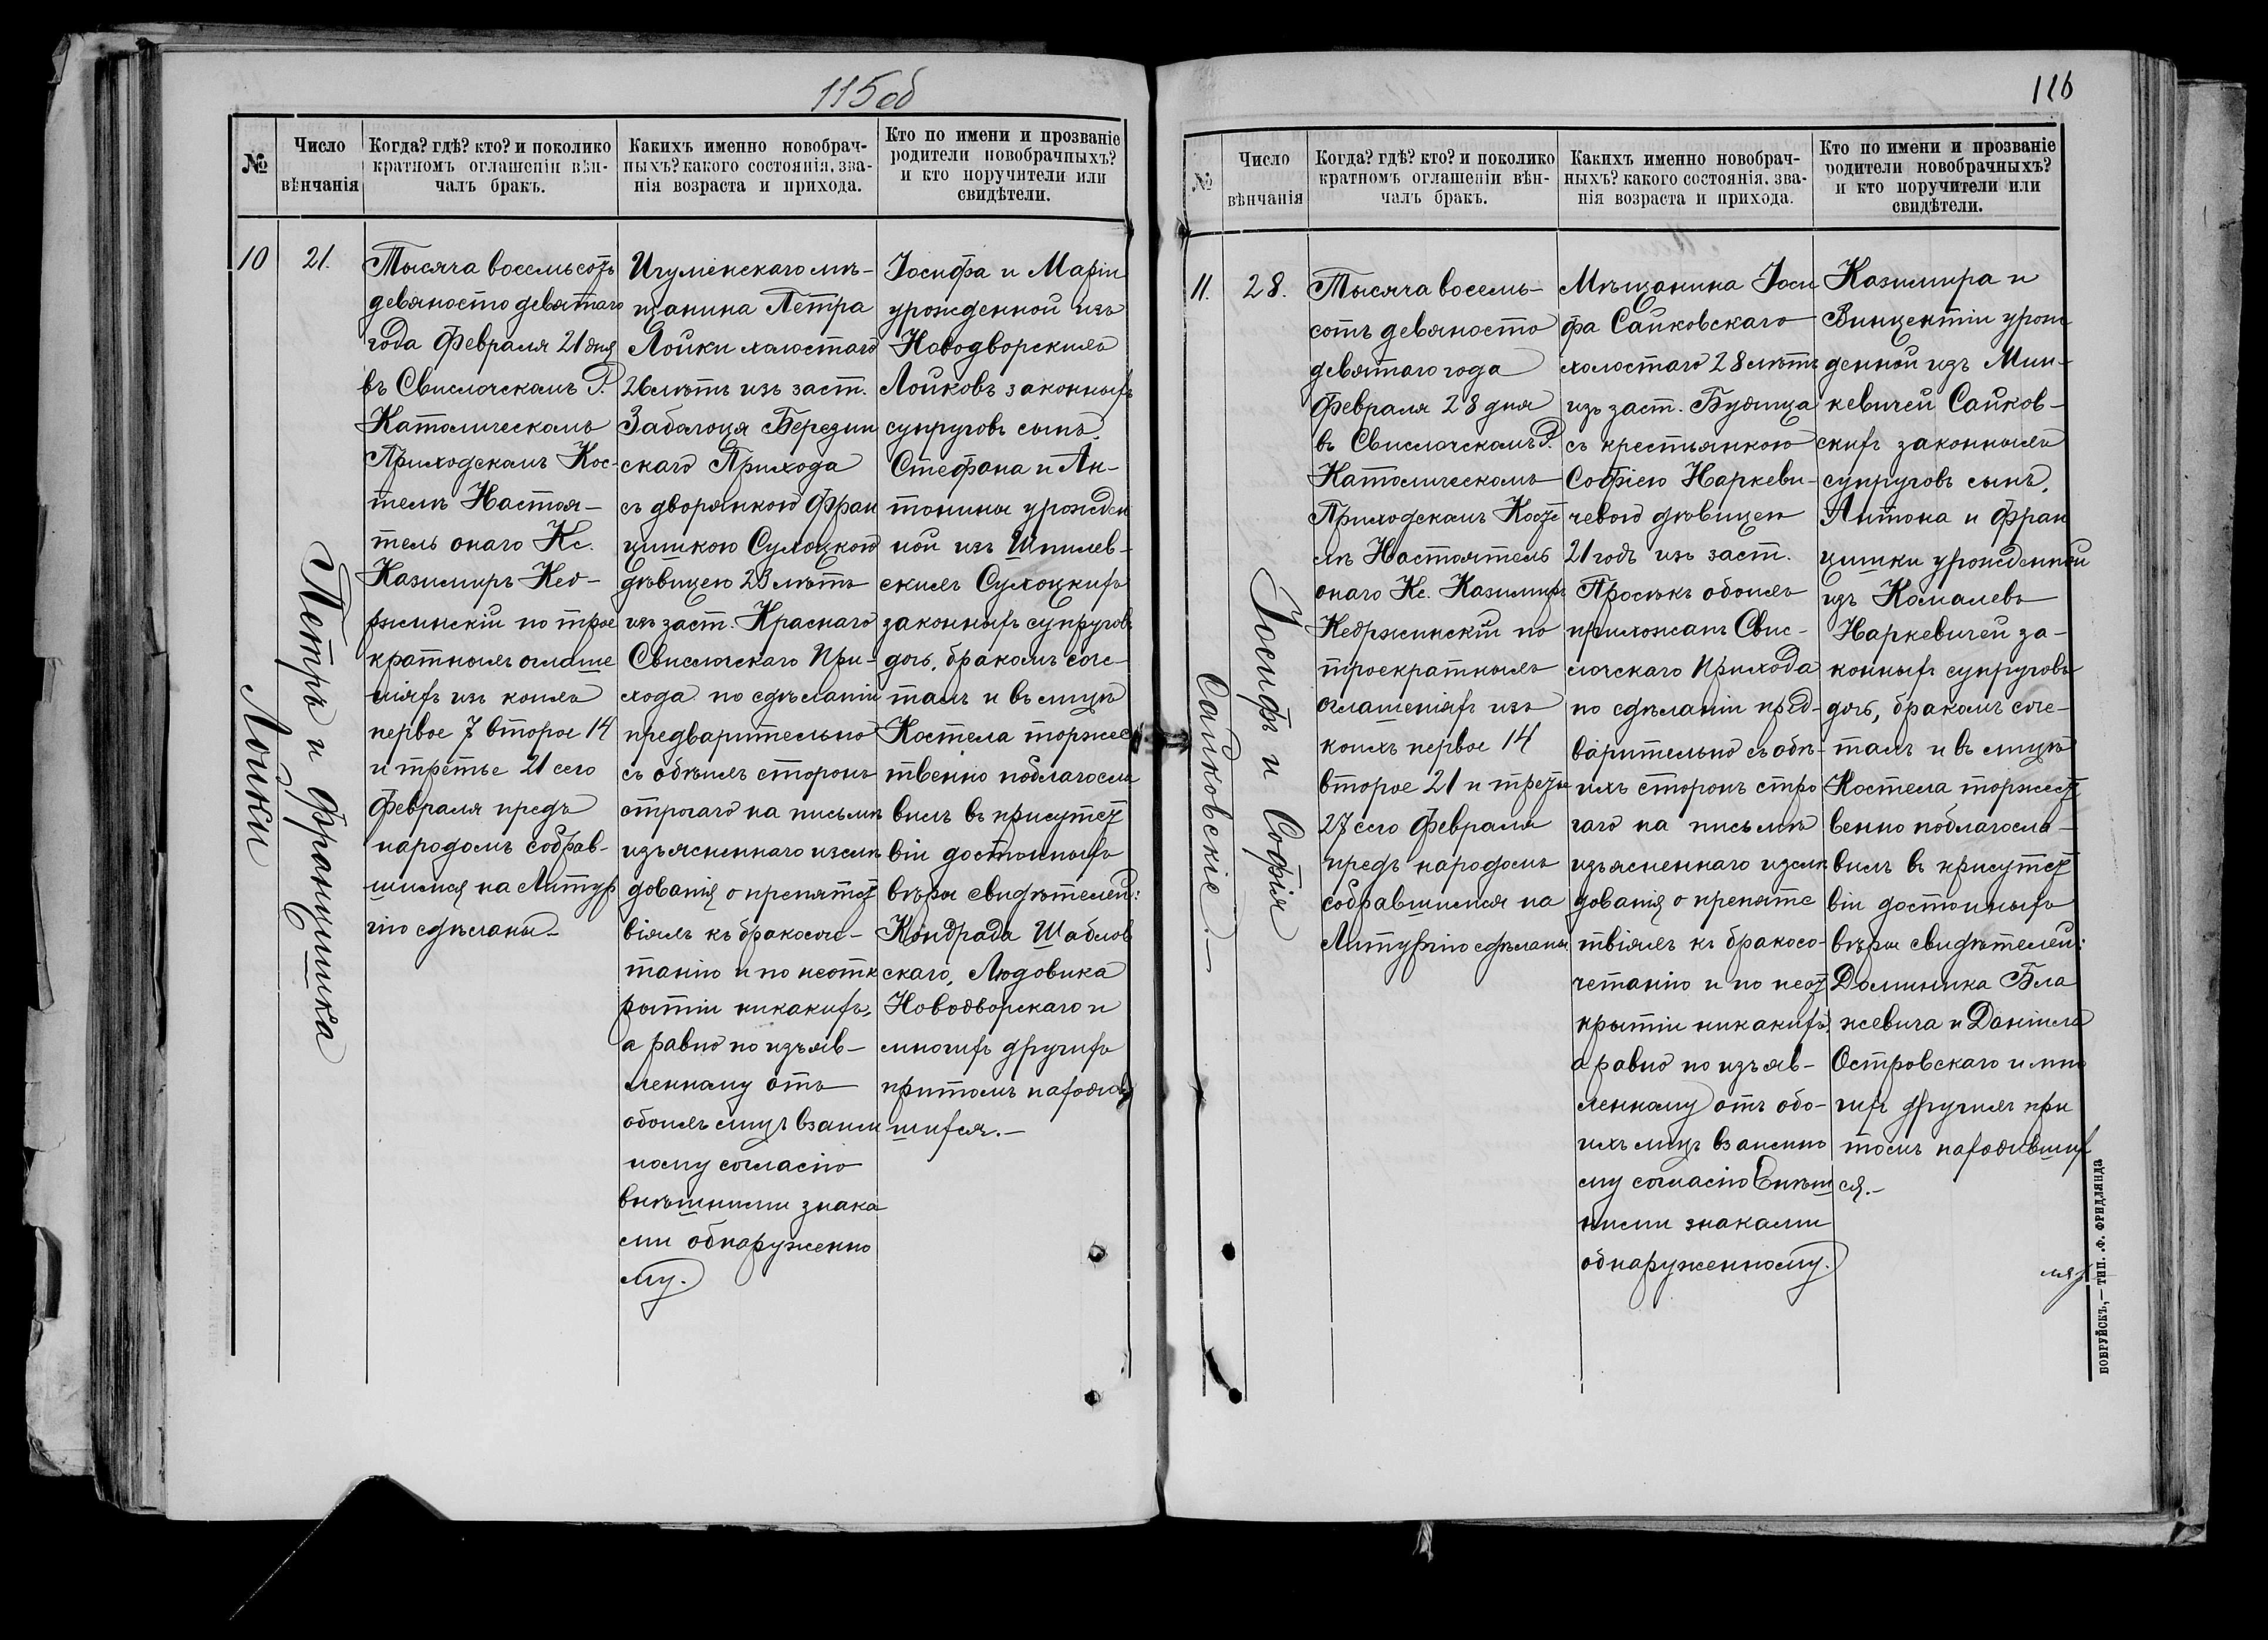 115об
№
Число
вѣнчанія
Когда? гдѣ? кто? и поколико
кратномъ оглашеніи вѣн-
чалъ бракъ.
Какихъ именно новобрач-
ныхъ? какого состоянія, зва-
нія возраста и прихода.
Кто по имени и прозваніе
родители новобрачныхъ?
и кто поручители или
свидѣтели.
10
21.
Петръ и Францишка
Лойки
Тысяча восемьсотъ
девяносто девятаго
года Февраля 21 дня
въ Свислочскомъ Р.
Католическомъ
Приходскомъ Кос-
телѣ Настоя-
тель онаго Кс.
Казимиръ Кед-
ржинскій по трое
кратныхъ оглаше
ніяхъ изъ коихъ
первое 7 второе 14
и третье 21 сего
Февраля предъ
народомъ собрав-
шимся на Литур
гію сдѣланы.-
Игуменскаго мѣ-
щанина Петра
Лойки холостаго
26 лѣтъ изъ заст.
Забалоця Березин
скаго Прихода
съ дворянкою Фран
цишкою Сулоцкою
дѣвицею 23 лѣтъ
изъ заст. Краснаго
Свислочскаго При-
хода по сдѣланіи
предварительно
съ обѣихъ сторонъ
строгаго на письмѣ
изъясненнаго изслѣ
дованія о препятст
віяхъ къ бракосоче-
танію и по неотк
рытіи никакихъ,
а равно по изъяв-
ленному отъ
обоихъ лицъ взаим
ному согласію
внѣшними знака
ми обнаруженно
му.
Іосифа и Маріи
урожденной изъ
Новодворскихъ
Лойковъ законныхъ
супруговъ сынъ,
Стефана и Ан-
тонины урожден
ной изъ Шпилев-
скихъ Сулоцкихъ
законныхъ супруговъ
дочь, бракомъ соче-
талъ и въ лицѣ
Костела торжес
твенно поблагосла
вилъ въ присутст
віи достойныхъ
вѣры свидѣтелей:
Кондрада Шаблов
скаго, Людовика
Новодворскаго и
многихъ другихъ
притомъ находив
шихся.-
116
№
Число
вѣнчанія
Когда? гдѣ? кто? и поколико
кратномъ оглашеніи вѣн-
чалъ бракъ.
Какихъ именно новобрач-
ныхъ? какого состоянія, зва-
нія возраста и прихода.
Кто по имени и прозваніе
родители новобрачныхъ?
и кто поручители или
свидѣтели.
11.
28.
Іосифъ и Софія
Сайковскіе.-
Тысяча восемь-
сотъ девяносто
девятаго года
Февраля 28 дня
въ Свислочскомъ Р.
Католическомъ
Приходскомъ Косте
лѣ Настоятель
онаго Кс. Казимиръ
Кедржинскій по
троекратныхъ
оглашеніяхъ изъ
коихъ первое 14
второе 21 и третье
27 сего Февраля
предъ народомъ
собравшимся на
Литургію сдѣланы
Мѣщанина Іоси
фа Сайковскаго
холостаго 28 лѣтъ
изъ заст. Будница
съ крестьянкою
Софіею Наркеви-
чевою дѣвицею
21 годъ изъ заст.
Просѣкъ обоихъ
прихожанъ Свис-
лочскаго Прихода
по сдѣланіи пред-
варительно съ обѣ-
ихъ сторонъ стро
гаго на письмѣ
изъясненнаго изслѣ
дованія о препятс
твіяхъ къ бракосо-
четанію и по неот
крытіи никакихъ,
а равно по изъяв-
ленному отъ обо-
ихъ лицъ взаимно
му согласію внѣш
ними знаками
обнаруженному.
Казимира и
Винцентіи урож
денной изъ Мин-
кевичей Сайков-
скихъ законныхъ
супруговъ сынъ,
Антона и Фран
цишки урожденной
изъ Комалевъ
Наркевичей за-
конныхъ супруговъ
дочь, бракомъ соче-
талъ и въ лицѣ
Костела торжест
венно поблагосла-
вилъ въ присутст
віи достойныхъ
вѣры свидѣтелей:
Доминика Бла
жевича и Даніила
Островскаго и мно
гихъ другихъ при
томъ находивших
ся.-
БОБРУЙСКЪ,—ТИП. Ф. ФРИДЛЯНДА